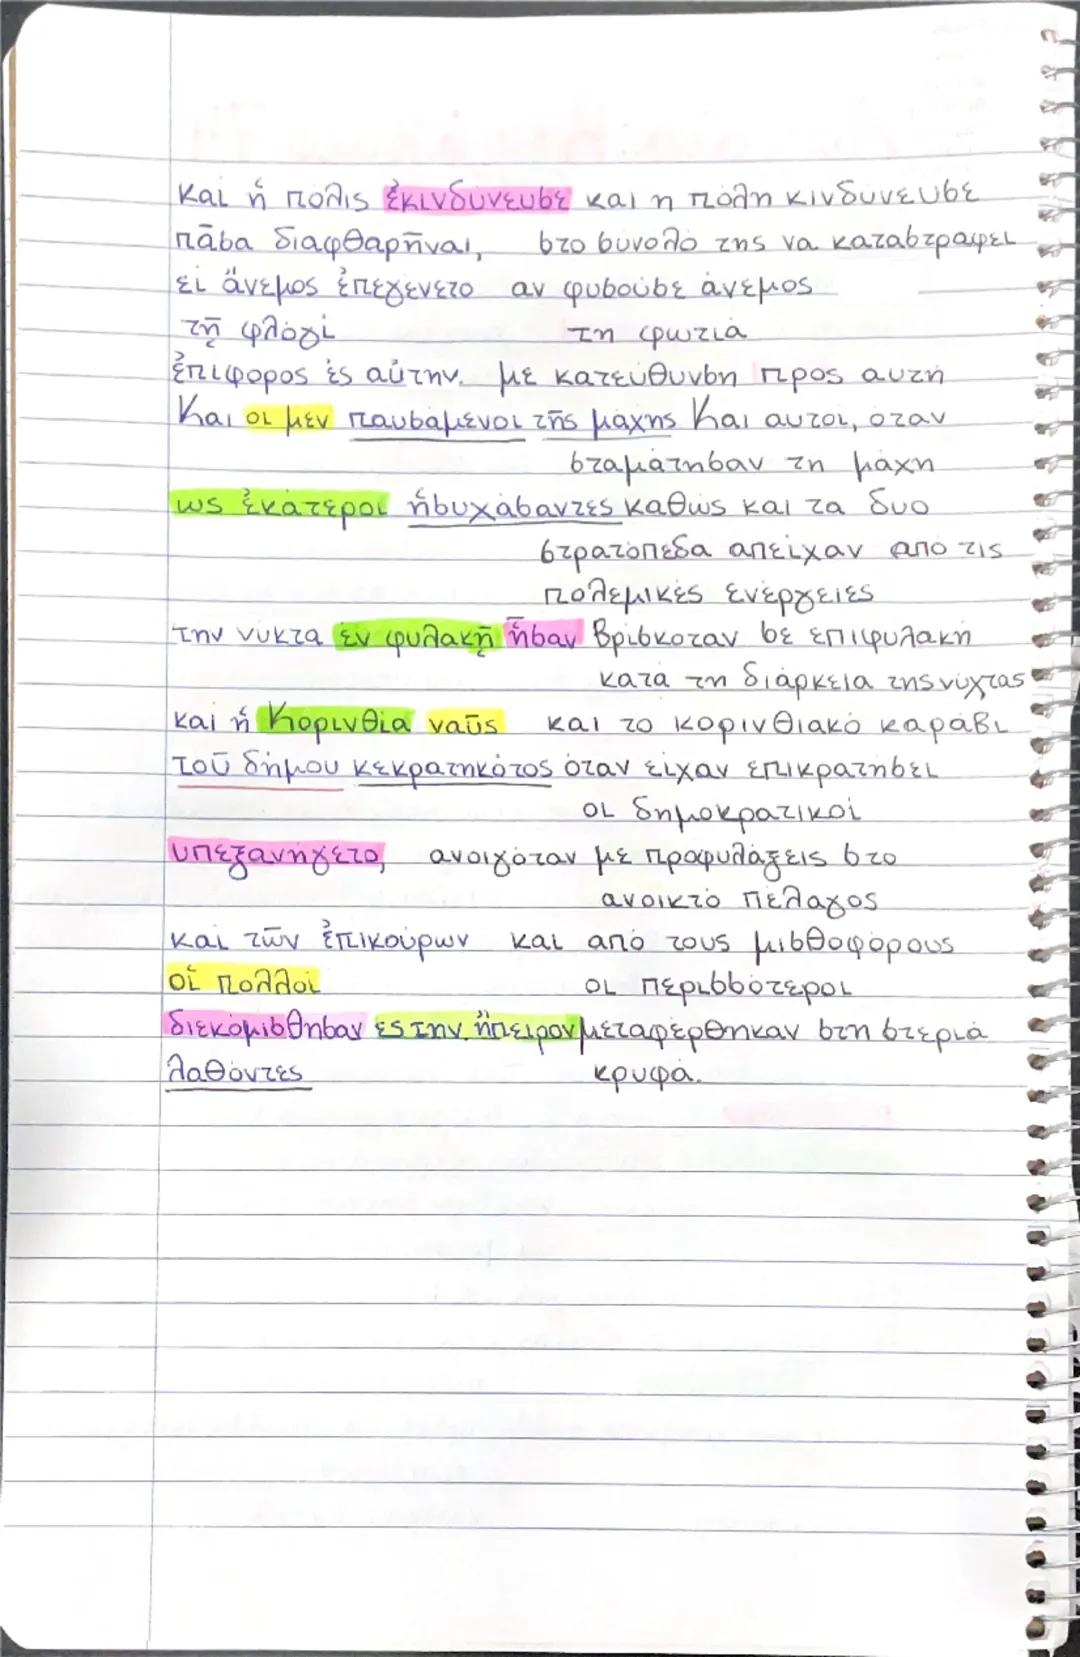 και ἡ πόλις ἐκινδύνευσε και η πόλη κινδύνευσε
πᾶσα διαφθαρῆναι, στο σύνολό της να καταστραφεί
εἰ ἄνεμος ἐπεγένετο αν φυσούσε άνεμος
τῇ φλογί τη φωτιά
ἐπίφορος ἐς αὐτήν. με κατεύθυνση προς αυτή
Και οι μεν παυσάμενοι τῆς μάχης Και αυτοί, όταν
σταμάτησαν τη μάχη
ως ἑκάτεροι ἡσυχάσαντες καθώς και τα δυο
στρατόπεδα απείχαν από τις
πολεμικές ενέργειες
την νύκτα ἐν φυλακῇ ἦσαν βρίσκοταν σε επιφυλακή
κατά τη διάρκεια της νύχτας
και ἡ Κορινθία ναῦς και το κορινθιακό καράβι
τοῦ δήμου κεκρατηκότος όταν είχαν επικρατήσει
οι δημοκρατικοί
υπεξανήγετο, ανοιγόταν με προφυλάξεις στο
ανοικτό πέλαγος
και τῶν ἐπικούρων και από τους μισθοφόρους
οἱ πολλοί οι περισσότεροι
διεκομίσθησαν ες την ἤπειρον μεταφέρθηκαν στη στεριά
λαθόντες κρυφά.